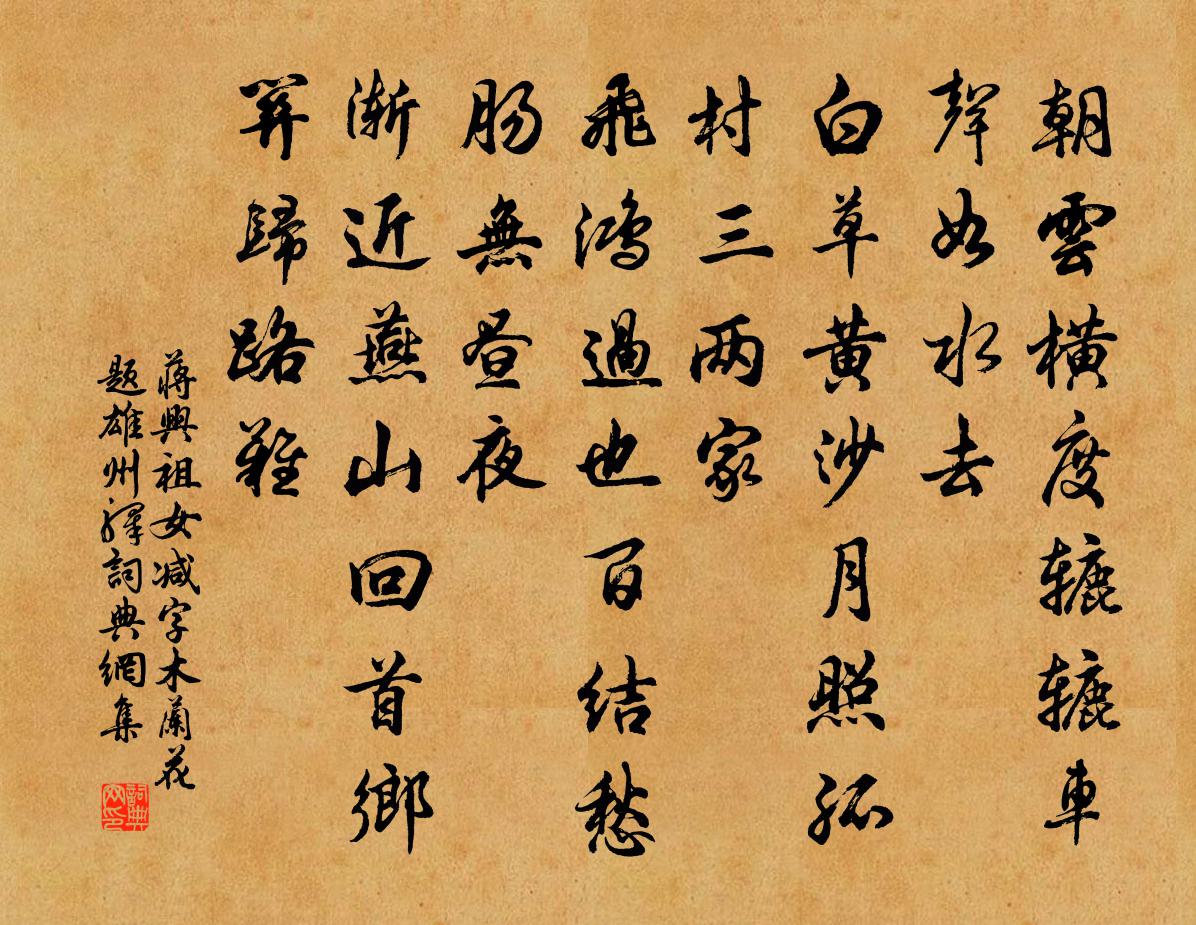 朝雲橫度轆轆車
聲如水去
白草黃沙月照孤
村三两家
飛鴻過也百結愁
腸無晝夜
漸近燕山回首鄉
關歸路難
蔣興祖女减字木蘭花
题雄州驛詞典網集
詞典網印